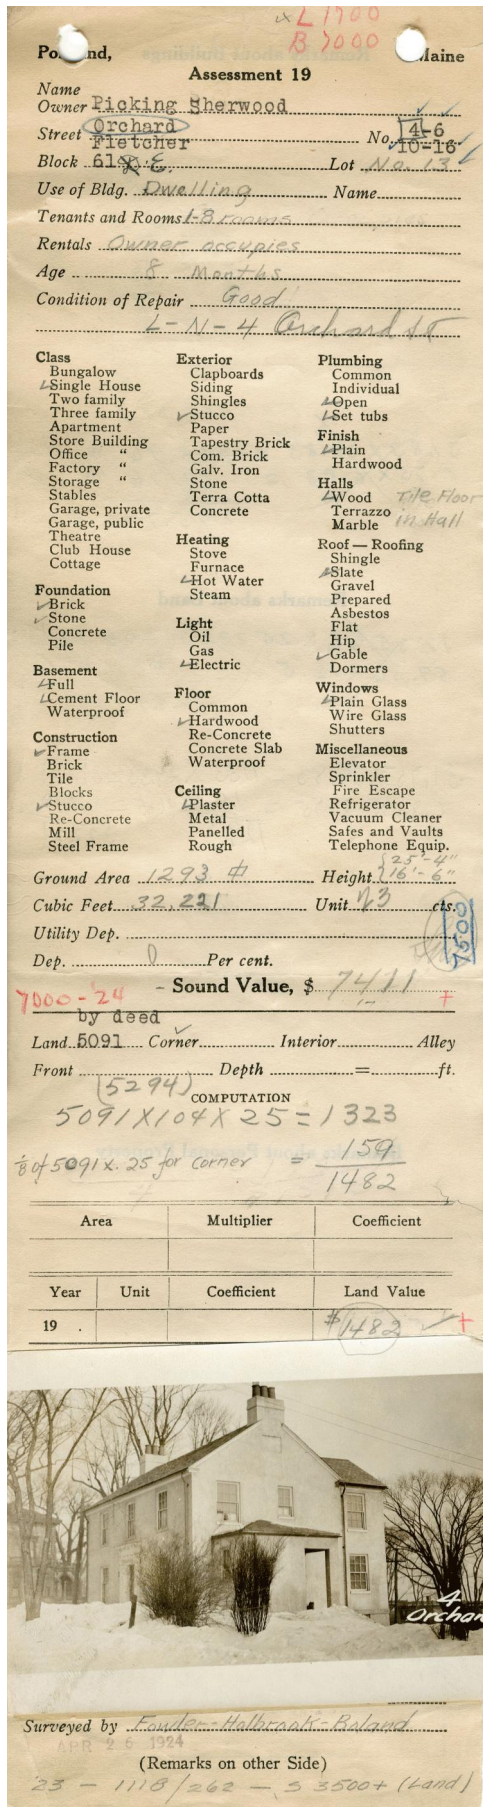 L 1700
B 7000
Portland, Maine
Assessment 19
Name
Owner Picking Sherwood
Street Orchard No. 4-6
Fletcher 10-16
Block 61 E. Lot No. 13
Use of Bldg. Dwelling Name
Tenants and Rooms 1-8 rooms
Rentals Owner occupies
Age 8 Months
Condition of Repair Good
L-N-4 Orchard St
Class
Bungalow
Single House
Two family
Three family
Apartment
Store Building
Office "
Factory "
Storage "
Stables
Garage, private
Garage, public
Theatre
Club House
Cottage
Foundation
Brick
Stone
Concrete
Pile
Basement
Full
Cement Floor
Waterproof
Construction
Frame
Brick
Tile
Blocks
Stucco
Re-Concrete
Mill
Steel Frame
Exterior
Clapboards
Siding
Shingles
Stucco
Paper
Tapestry Brick
Com. Brick
Galv. Iron
Stone
Terra Cotta
Concrete
Heating
Stove
Furnace
Hot Water
Steam
Light
Oil
Gas
Electric
Floor
Common
Hardwood
Re-Concrete
Concrete Slab
Waterproof
Ceiling
Plaster
Metal
Panelled
Rough
Plumbing
Common
Individual
Open
Set tubs
Finish
Plain
Hardwood
Halls
Wood Tile Floor
Terrazzo in Hall
Marble
Roof — Roofing
Shingle
Slate
Gravel
Prepared
Asbestos
Flat
Hip
Gable
Dormers
Windows
Plain Glass
Wire Glass
Shutters
Miscellaneous
Elevator
Sprinkler
Fire Escape
Refrigerator
Vacuum Cleaner
Safes and Vaults
Telephone Equip.
25'-4"
Ground Area 1293 Height 16'-6"
Cubic Feet 32,221 Unit 23 cts.
7500
Utility Dep.
Dep. 0 Per cent.
Sound Value, $ 7411
7000-'24
by deed
Land 5091 Corner Interior Alley
Front Depth = ft.
(5294)
COMPUTATION
5091 X 104 X 25 = 1323
1/8 of 5091 x .25 for corner = 159
1482
Area Multiplier Coefficient
Year Unit Coefficient Land Value
19 . $1482
4
Orchar
Surveyed by Fowder-Holbrook-Boland
APR 26 1924
(Remarks on other Side)
'23 - 1118/262 - $ 3500+ (Land)